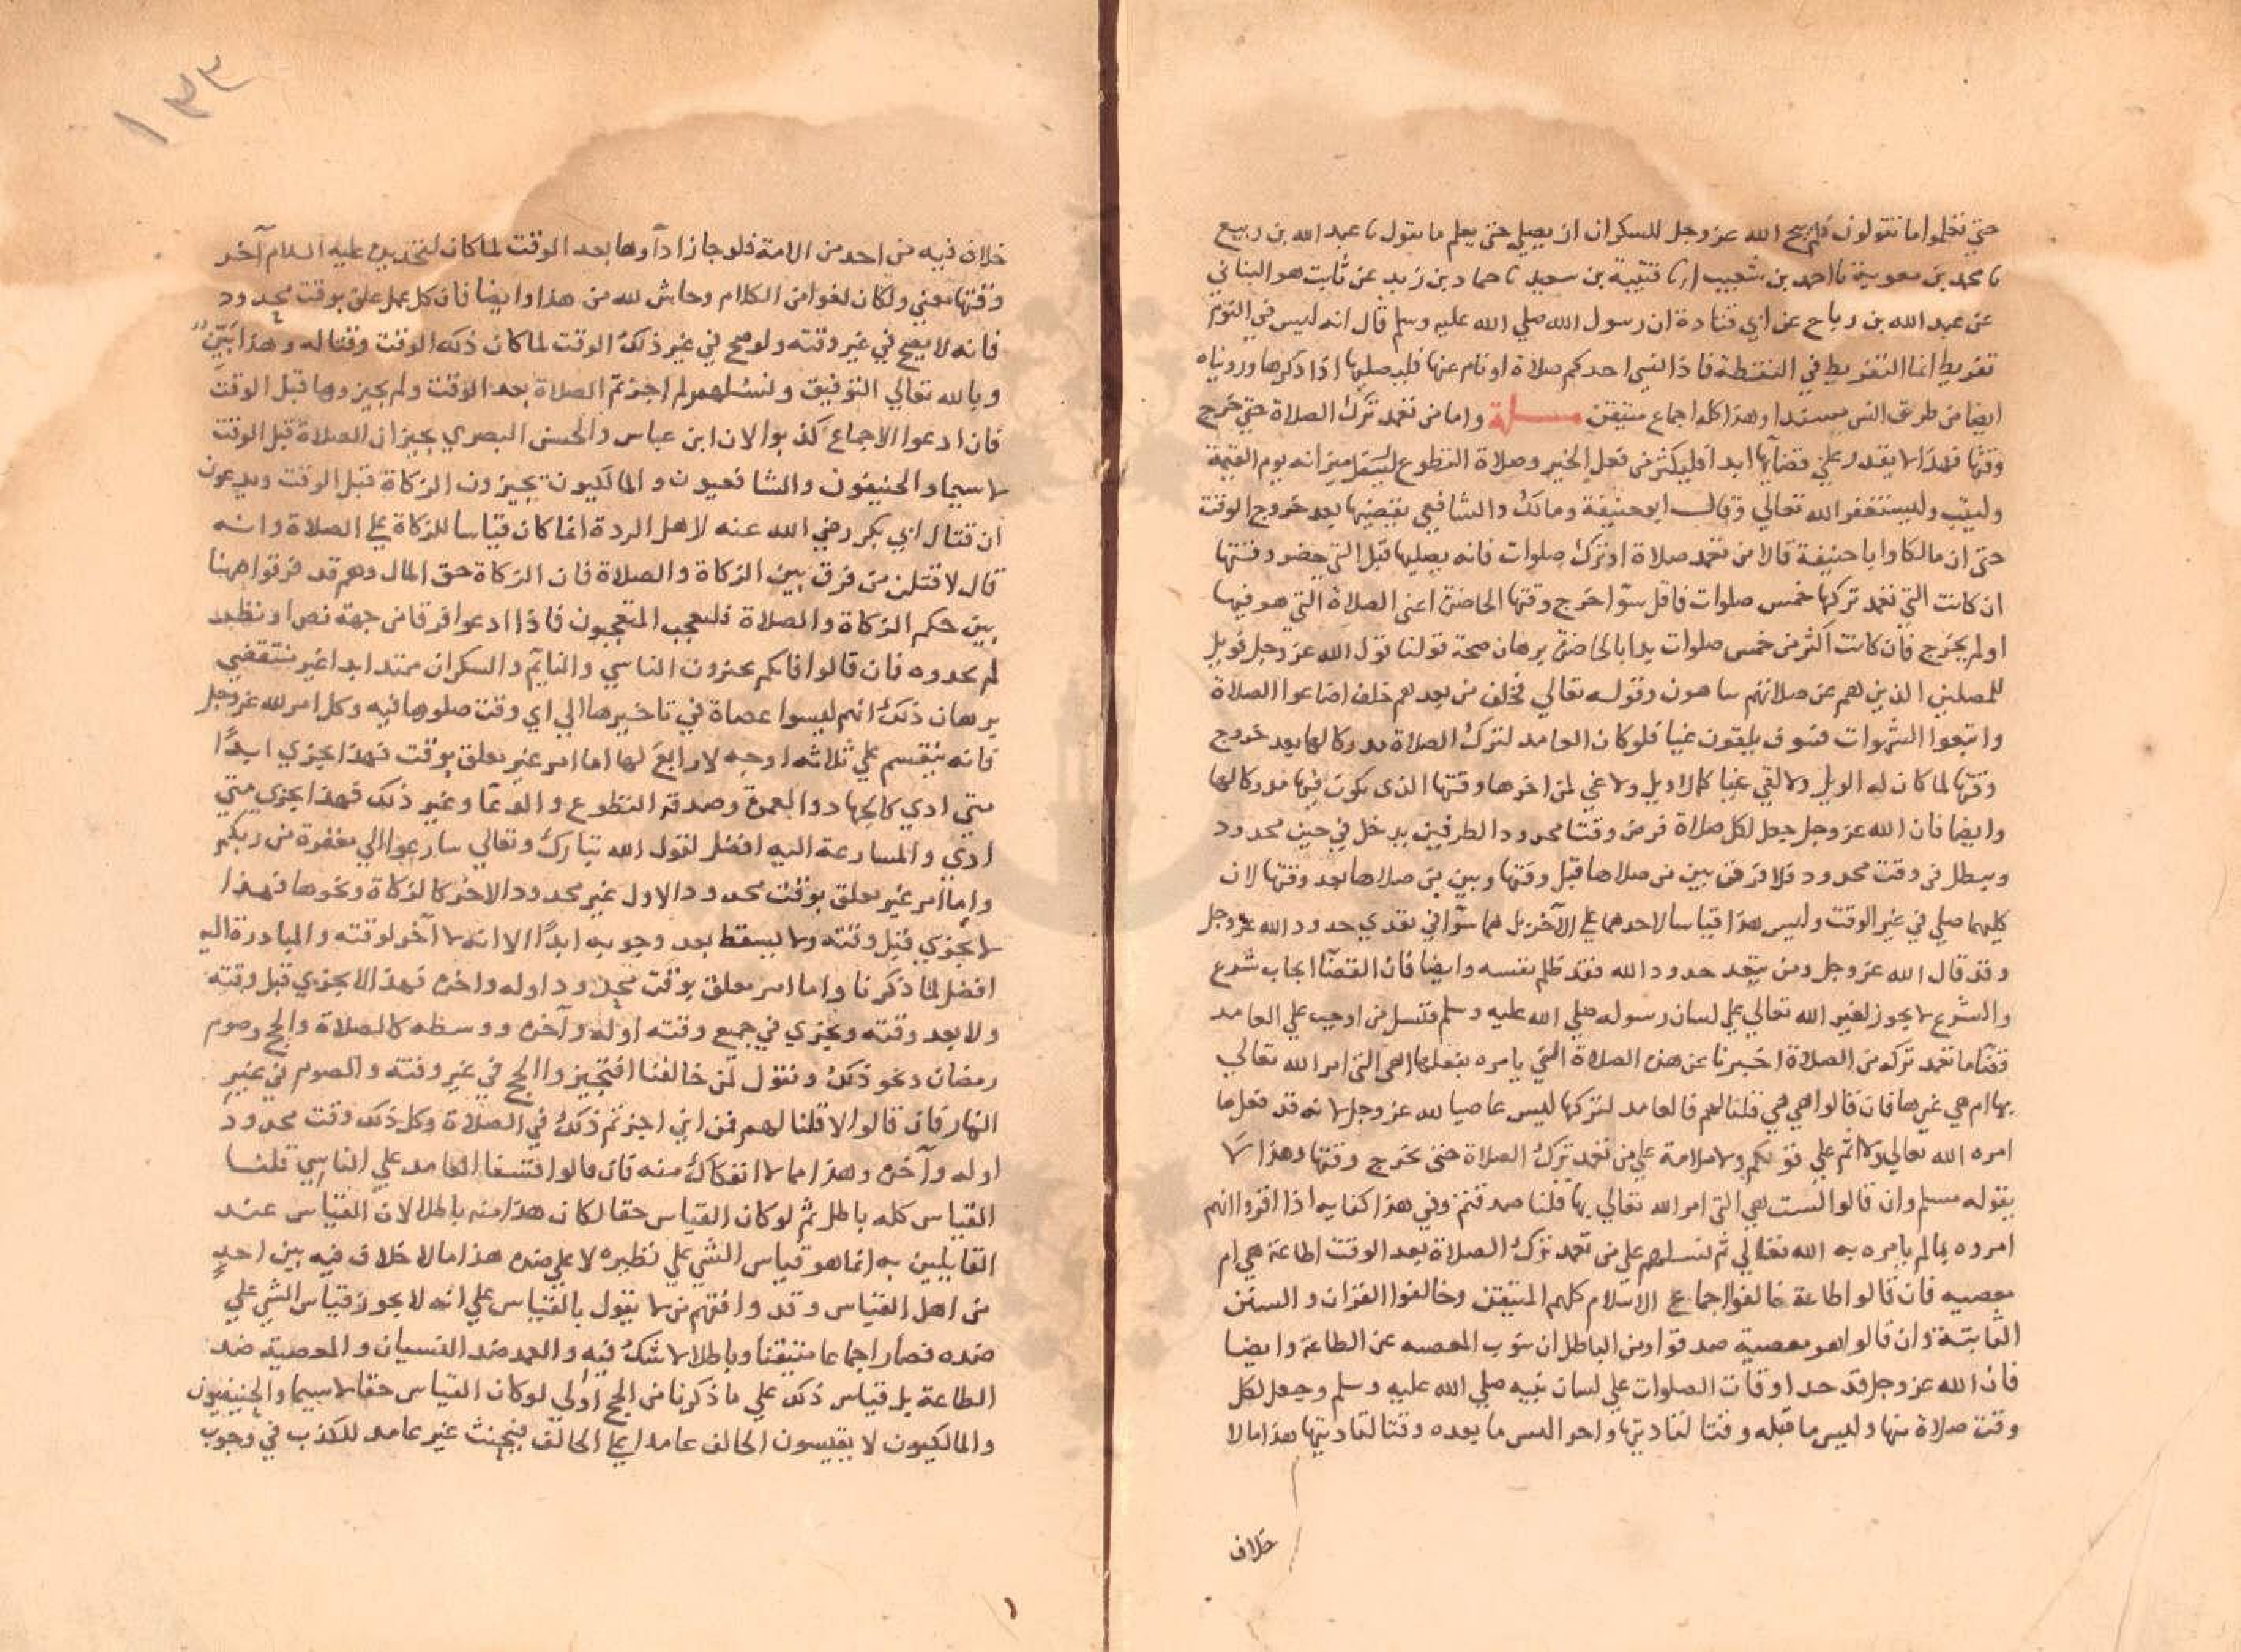 حتي تعلموا ما تقولون فلم يبح الله عز وجل للسكران ان يصلي حتى يعلم ما يقول نا عبد الله بن ربيع
نا محمد بن معوية نا احمد بن شعيب انا قتيبة بن سعيد نا حماد بن زيد عن ثابت هو البناني
عن عبد الله بن رباح عن ابي قتادة ان رسول الله صلي الله عليه وسلم قال انه ليس في النوم
تفريط انما التفريط في اليقظة فاذا نسي احدكم صلاة او نام عنها فليصليها اذا ذكرها ورويناه
ايضا من طريق انس مسندا وهذا كله اجماع متيقن مسلة واما من تعمد ترك الصلاة حتي خرج
وقتها فهذا لا يقدر علي قضآيها ابدا فليكثر من فعل الخير وصلاة التطوع ليثقل ميزانه يوم القيمة
وليتب وليستغفر الله تعالي وقال ابو حنيفة ومالك والشافعي يقضيها بعد خروج الوقت
حتى ان مالكا وابا حنيفة قالا من تعمد صلاة او ترك صلوات فانه يصليها قبل التي حضر وقتها
ان كانت التي تعمد تركها خمس صلوات فاقل سوآ خرج وقتها الحاضرة اعنى الصلاة التي هو فيها
او لم يخرج فان كانت اكثر من خمس صلوات بدا بالحاضرة برهان صحة قولنا قول الله عز وجل فويل
للمصلين الذين هم عن صلاتهم ساهون وقوله تعالي فخلف من بعدهم خلف اضاعوا الصلاة
واتبعوا الشهوات فسوف يلقون غيا فلو كان العامد لترك الصلاة مدركا لها بعد خروج
وقتها لما كان له الويل ولا لقي غيا كما لا ويل ولا غي لمن اخرها وقتها الذى يكون فيها مدركا لها
وايضا فان الله عز وجل جعل لكل صلاة فرض وقتا محدود الطرفين يدخل في حين محدود
ويبطل في وقت محدود فلا فرق بين من صلاها قبل وقتها وبين من صلاها بعد وقتها لان
كليهما صلي في غير الوقت وليس هذا قياسا لاحدهما علي الآخر بل هما سوآ في تعدي حدود الله عز وجل
وقد قال الله عز وجل ومن يتعد حدود الله فقد ظلم نفسه وايضا فان القضآ ايجاب شرع
والشرع لا يجوز لغير الله تعالي علي لسان رسوله صلي الله عليه وسلم فنسل من اوجب علي العامد
قضآ ما تعمد تركه من الصلاة اخبرنا عن هذه الصلاة التي يامره بفعلها اهى التى امر الله تعالي
بها ام هي غيرها فان قالوا هي هي قلنا لهم فالعامد لتركها ليس عاصيا لله عز وجل لانه قد فعل ما
امره الله تعالي ولا اثم علي قولكم ولا ملامة علي من تعمد ترك الصلاة حتى يخرج وقتها وهذا لا
يقوله مسلم وان قالوا ليست هي التى امر الله تعالي بها قلنا صدقتم وفي هذا كفاية اذا اقروا انهم
امروه بما لم يامره به الله تعالي ثم نسلهم علي من تعمد ترك الصلاة بعد الوقت اطاعة هي ام
معصية فان قالوا طاعة خالفوا اجماع الاسلام كلهم المتيقن وخالفوا القران والسنن
الثابتة وان قالوا هو معصية صدقوا ومن الباطل ان تنوب المعصيه عن الطاعة وايضا
فان الله عز وجل قد حد اوقات الصلوات علي لسان نبيه صلي الله عليه وسلم وجعل لكل
وقت صلاة منها وليس ما قبله وقتا لتاديتها واخر ليس ما بعده وقتا لتاديتها هذا ما لا
خلاف
١٣٣
خلاف فيه من احد من الامة فلو جاز ادآوها بعد الوقت لما كان لتحديده عليه السلام آخر
وقتها معني ولكان لغوا من الكلام وحاش لله من هذا وايضا فان كل عمل علق بوقت محدود
فانه لا يصح في غير وقته ولو صح في غير ذلك الوقت لما كان ذلك الوقت وقتا له وهذا بين
وبالله تعالي التوفيق ونسلهم لم اجزتم الصلاة بعد الوقت ولم تجيزوها قبل الوقت
فان ادعوا الاجماع كذبوا لان ابن عباس والحسن البصري يجيزان الصلاة قبل الوقت
لا سيما والحنيفون والشافعيون والمالكيون يجيزون الزكاة قبل الوقت ويدعون
ان قتال ابي بكر رضي الله عنه لاهل الردة انما كان قياسا للزكاة علي الصلاة وانه
قال لاقتلن من فرق بين الزكاة والصلاة فان الزكاة حق المال وهم قد فرقوا هاهنا
بين حكم الزكاة والصلاة فليعجب المتعجبون فاذا ادعوا فرقا من جهة نص او نظر
لم يجدوه فان قالوا فانكم تجيزون الناسي والنايم والسكران ممتد ابدا غير منقضي
برهان ذلك انهم ليسوا عصاة في تاخيرها الي اي وقت صلوها فيه وكل امر لله عز وجل
فانه ينقسم علي ثلاثه اوجه لا رابع لها اما امر غير معلق بوقت فهذا يجزي ابدا
متي ادي كالجهاد والعمرة وصدقة التطوع والدعآ وغير ذلك فهذا يجزى متي
ادي والمسارعة اليه افضل لقول الله تبارك وتعالي سارعوا الي مغفرة من ربكم
واما امر غير معلق بوقت محدود الاول غير محدود الاخر كالزكاة ونحوها فهذا
لا يجزي قبل وقته ولا يسقط بعد وجوبه ابدا الا انه لا آخر لوقته والمبادرة اليه
افضل لما ذكرنا واما امر معلق بوقت محدود اوله واخره فهذا لا يجزي قبل وقته
ولا بعد وقته ويجزي في جميع وقته اوله وآخره ووسطه كالصلاة والحج وصوم
رمضان ونحو ذلك ونقول لمن خالفنا افتجيزوا الحج في غير وقته والصوم في غير
النهار فان قالوا لا قلنا لهم فمن اين اجزتم ذلك في الصلاة وكل ذلك وقت محدود
اوله وآخره وهذا مما لا انفكاك منه فان قالوا قسنا العامد علي الناسي قلنا
القياس كله باطل ثم لو كان القياس حقا لكان هذا منه باطلا لان القياس عند
القايلين به انما هو قياس الشي علي نظيره لا علي ضده هذا ما لا خلاف فيه بين احد
من اهل القياس وقد وافقهم من لا يقول بالقياس علي انه لا يجوز قياس الشي علي
ضده فصار اجماعا متيقنا وباطلا لا شك فيه والعمد ضد النسيان والمعصية ضد
الطاعة بل قياس ذلك علي ما ذكرنا من الحج اولي لو كان القياس حقا لا سيما والحنيفيون
والمالكيون لا يقيسون الحالف عامدا علي الحالف فيحنث غير عامد للكذب في وجوب